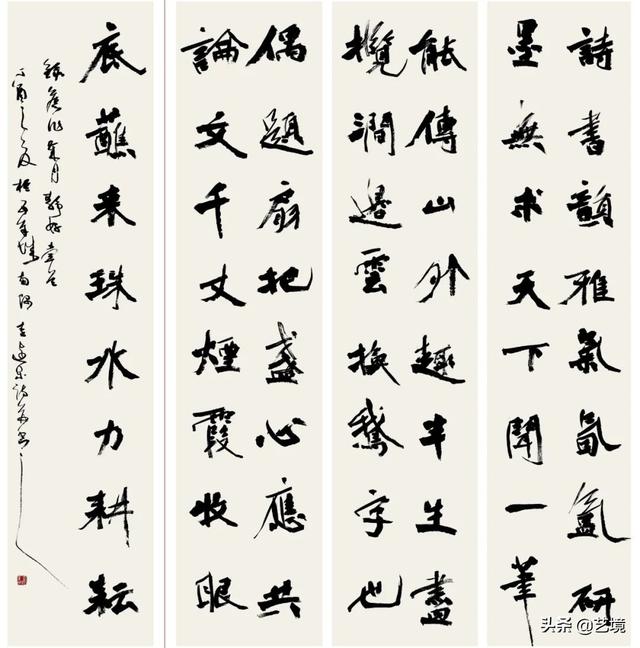 詩書韻雅氣氤氳研
墨無求天下聞一筆
能傳山外趣半生盡
攬澗邊雲換鵝字也
偶題扇把盞心應共
論文千丈煙霞收眼
底蘸来珠水力耕耘
丁酉之夏於五羊城南隅
头条 @艺境